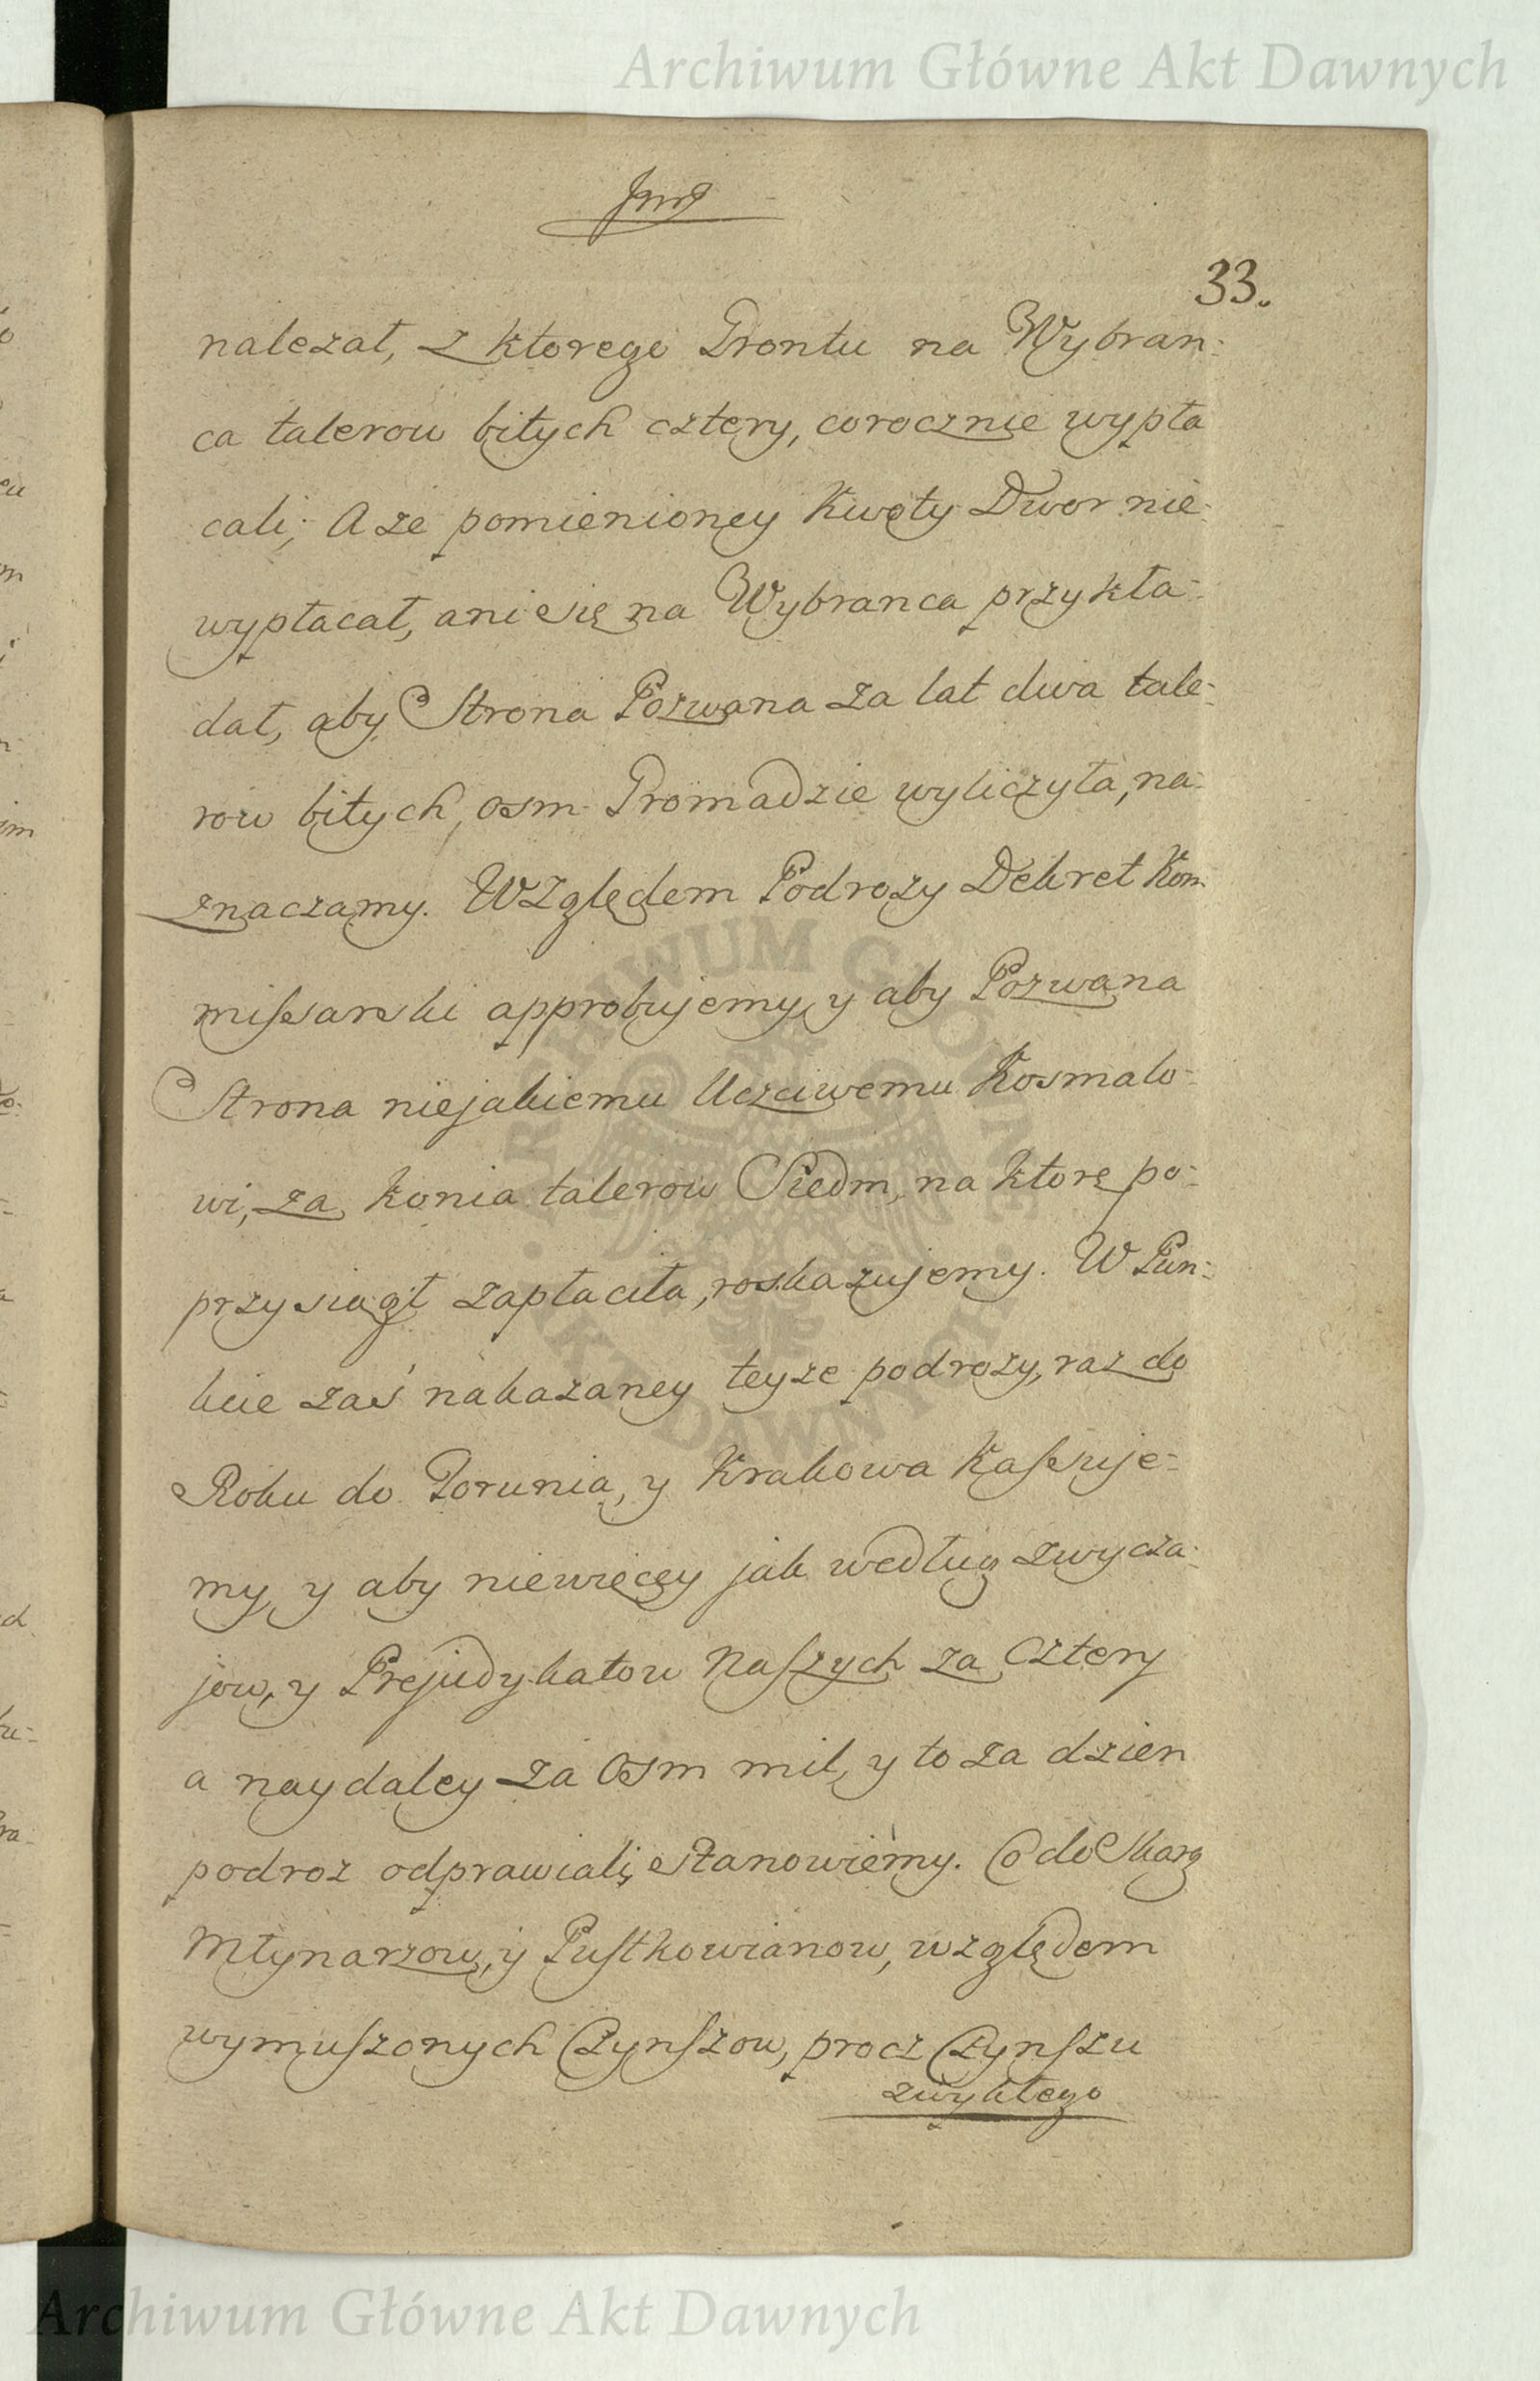 Archiwum Główne Akt Dawnych
33.
należał, z ktorego Grontu na Wybran:
ca talerow bitych cztery, corocznie wypła
cali; A że pomienioney Kwoty Dwor nie:
wypłacał, ani się na Wybranca przykła:
dał, aby Strona Pozwana za lat dwa tale:
row bitych, osm Gromadzie wyliczyła, na:
znaczamy. Względem Podrozy Dekret Kom:
missarski approbujemy, y aby Pozwana
Strona niejakiemu Uczciwemu Kosmalo:
wi, za konia talerow Siedm, na ktorę po:
przysiągł zapłaciła, roskazujemy. W Pun:
kcie zaś nakazaney teyże podrozy, raz do
Roku do Torunia, y Krakowa Kassuje:
my, y aby niewięcey jak według zwycza:
jow, y Prejudykatow Naszych za Cztery
a naydaley za Osm mil, y to za dzien
podroz odprawiali, stanowiemy. Co do Skarg
Młynarzow, y Pustkowianow, względem
wymuszonych Czynszow, procz Czynszu
zwykłego
ARCHIWUM GŁÓWNE AKT DAWNYCH
Archiwum Główne Akt Dawnych